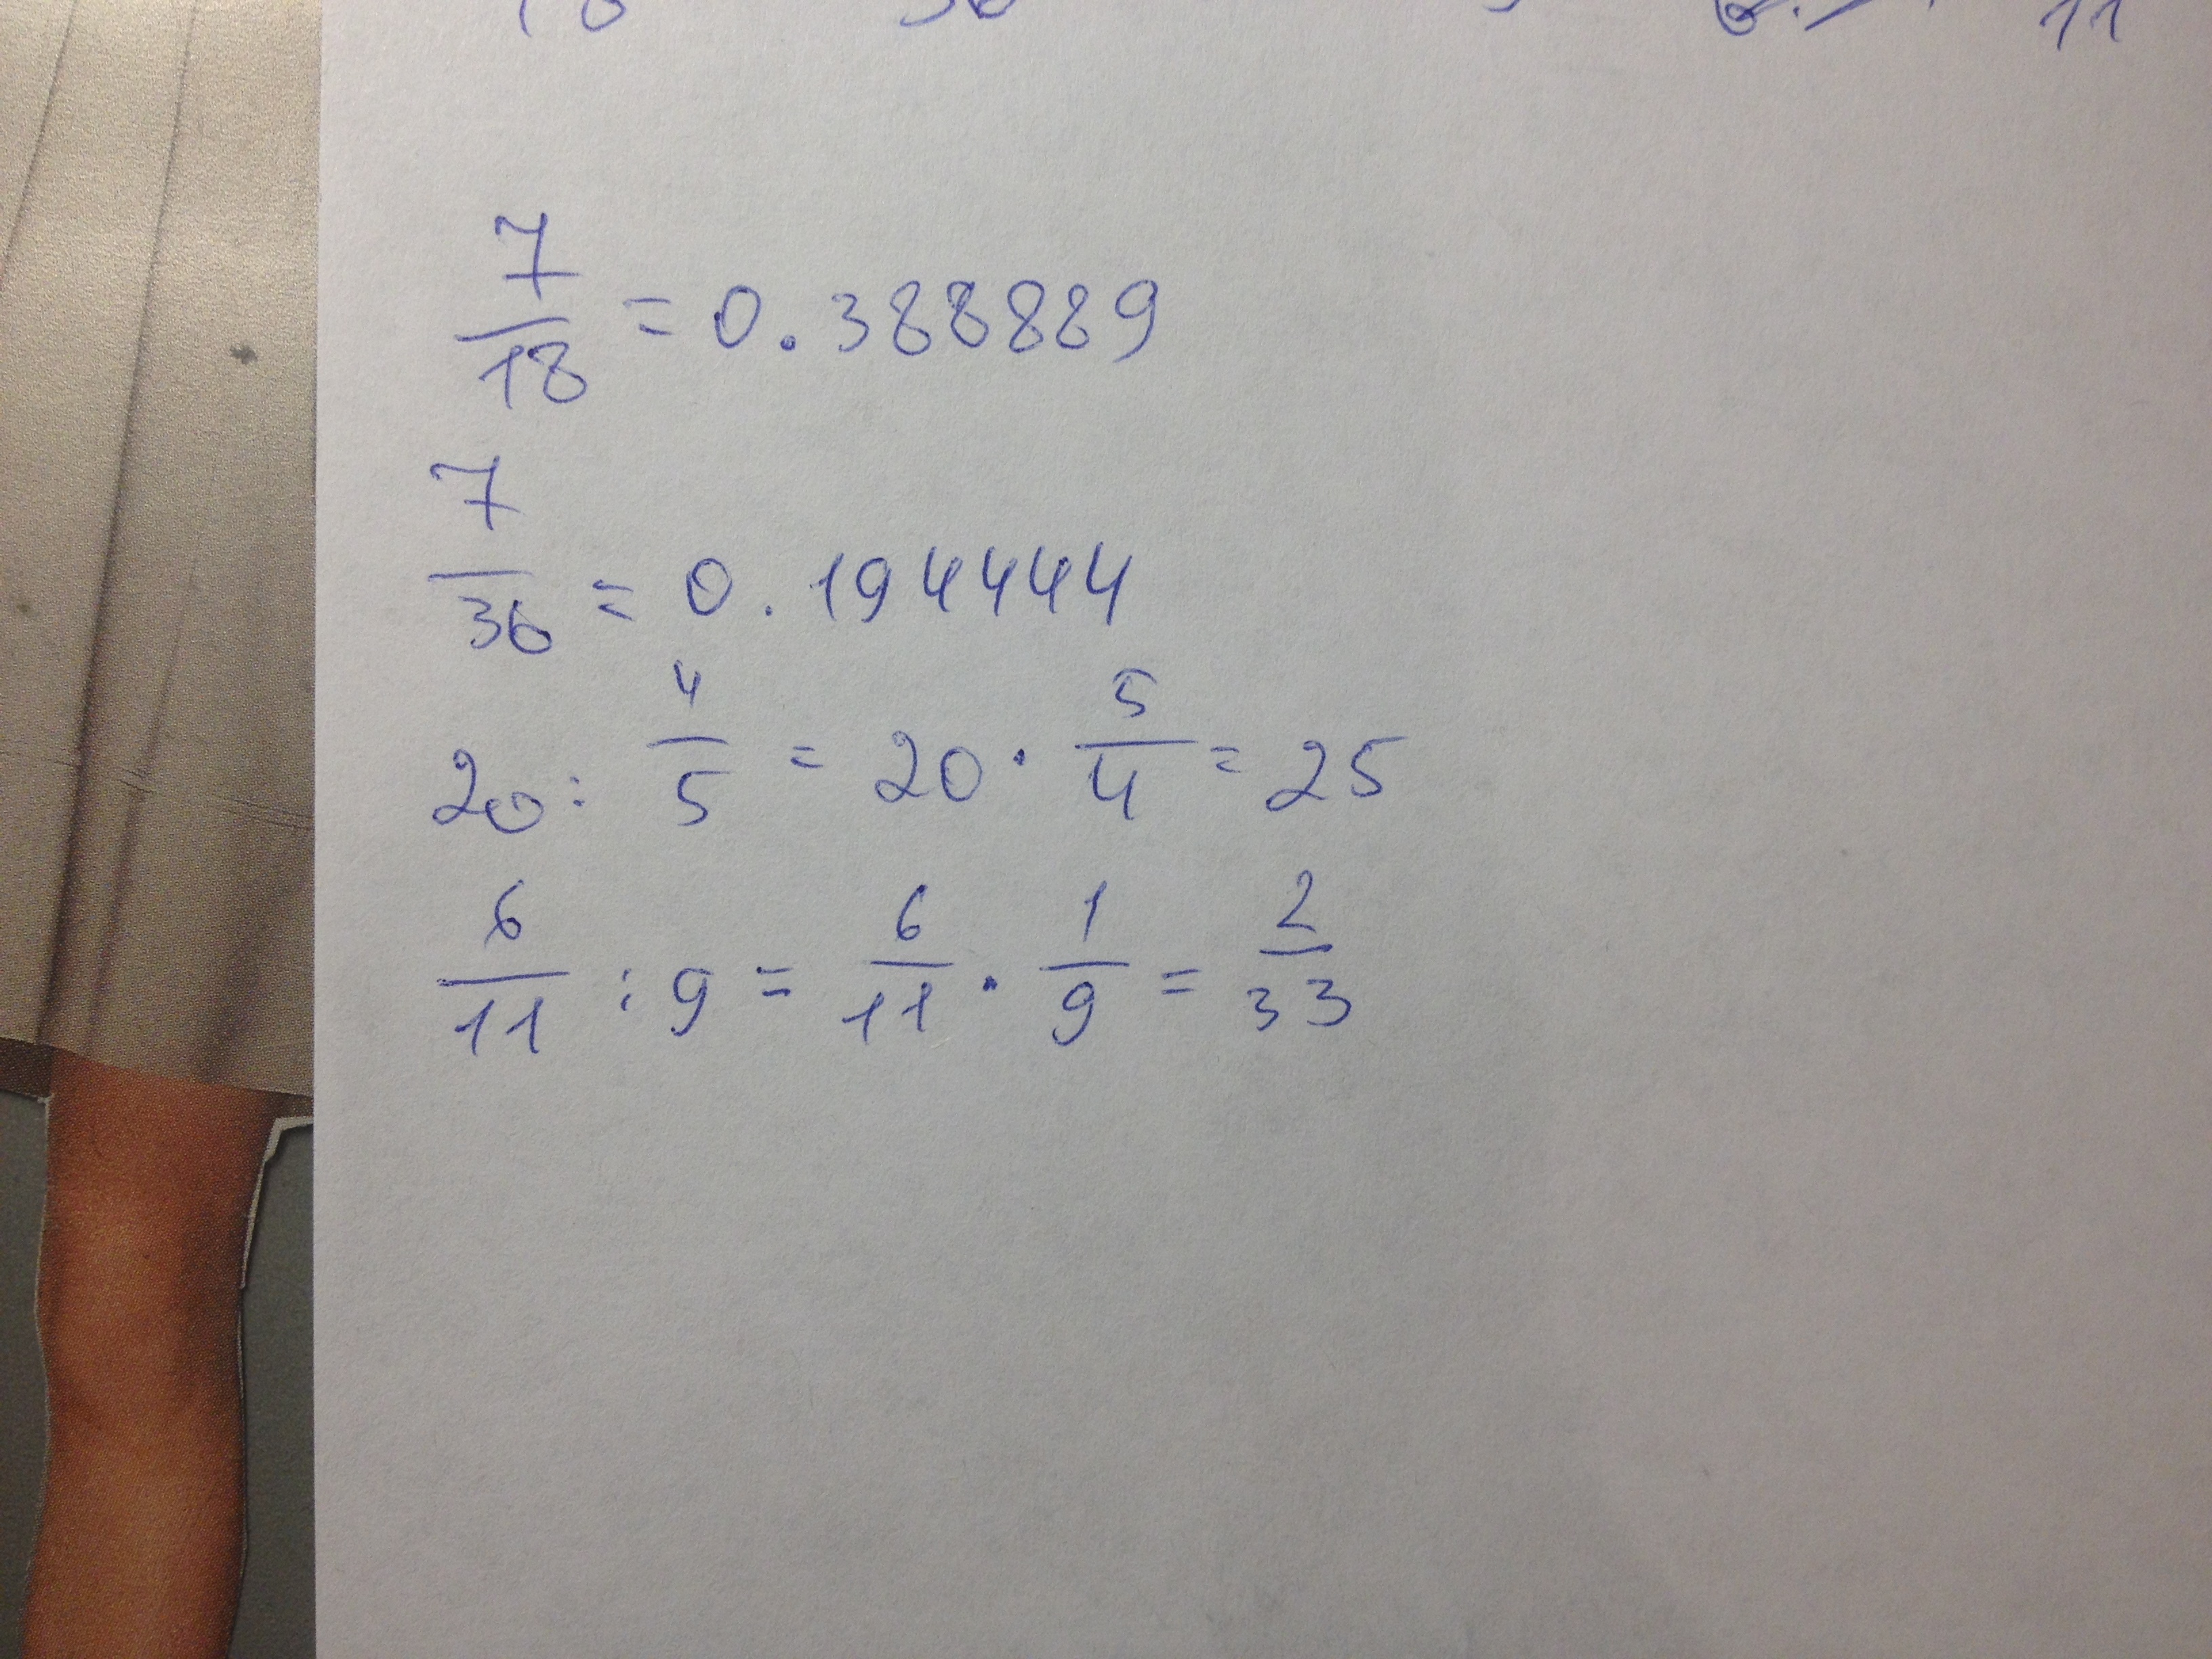 7/18 = 0.388889
7/36 = 0.194444
20 : 4/5 = 20 · 5/4 = 25
6/11 : 9 = 6/11 · 1/9 = 2/33